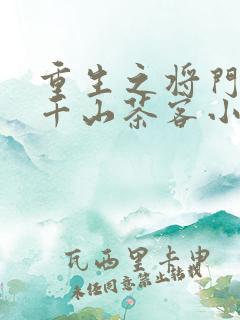 重生之将门
千山茶客小
瓦西里卡申
未经同意禁止转载